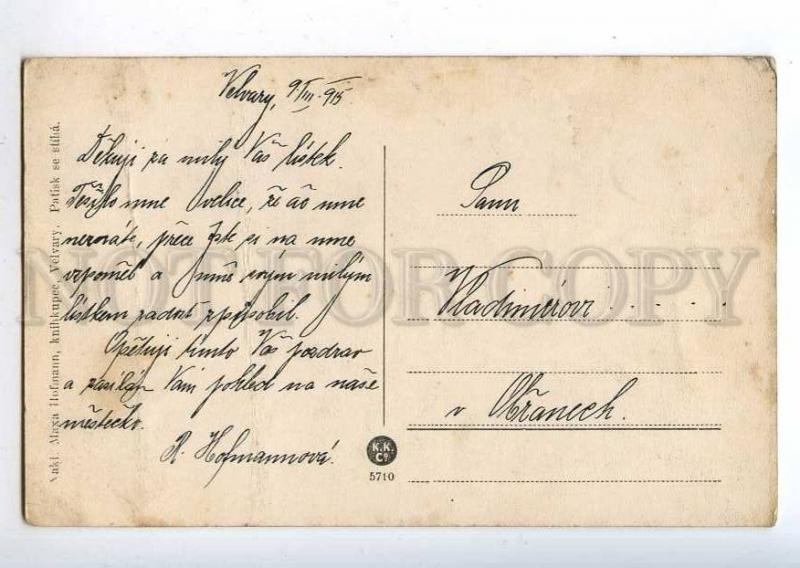 Velvary, 9./VIII. 915.
Děkuji za milý Váš lístek.
Těšilo mne velice, že ač mne
neznáte, přece jste si na mne
vzpoměl a mně svým milým
lístkem radost způsobil.
Opětuji tímto Váš pozdrav
a zasílám Vám pohled na naše
městečko.
R. Hofmannová.
Panu
Vladimírovi
v Obřanech.
K.K.
Co.
5710
Nakl. Maxa Hofmann, knihkupec, Velvary. Patisk se stíhá.
NOT FOR COPY